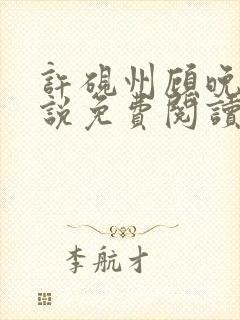 許硯州顧晚
說免費閱讀
李航才